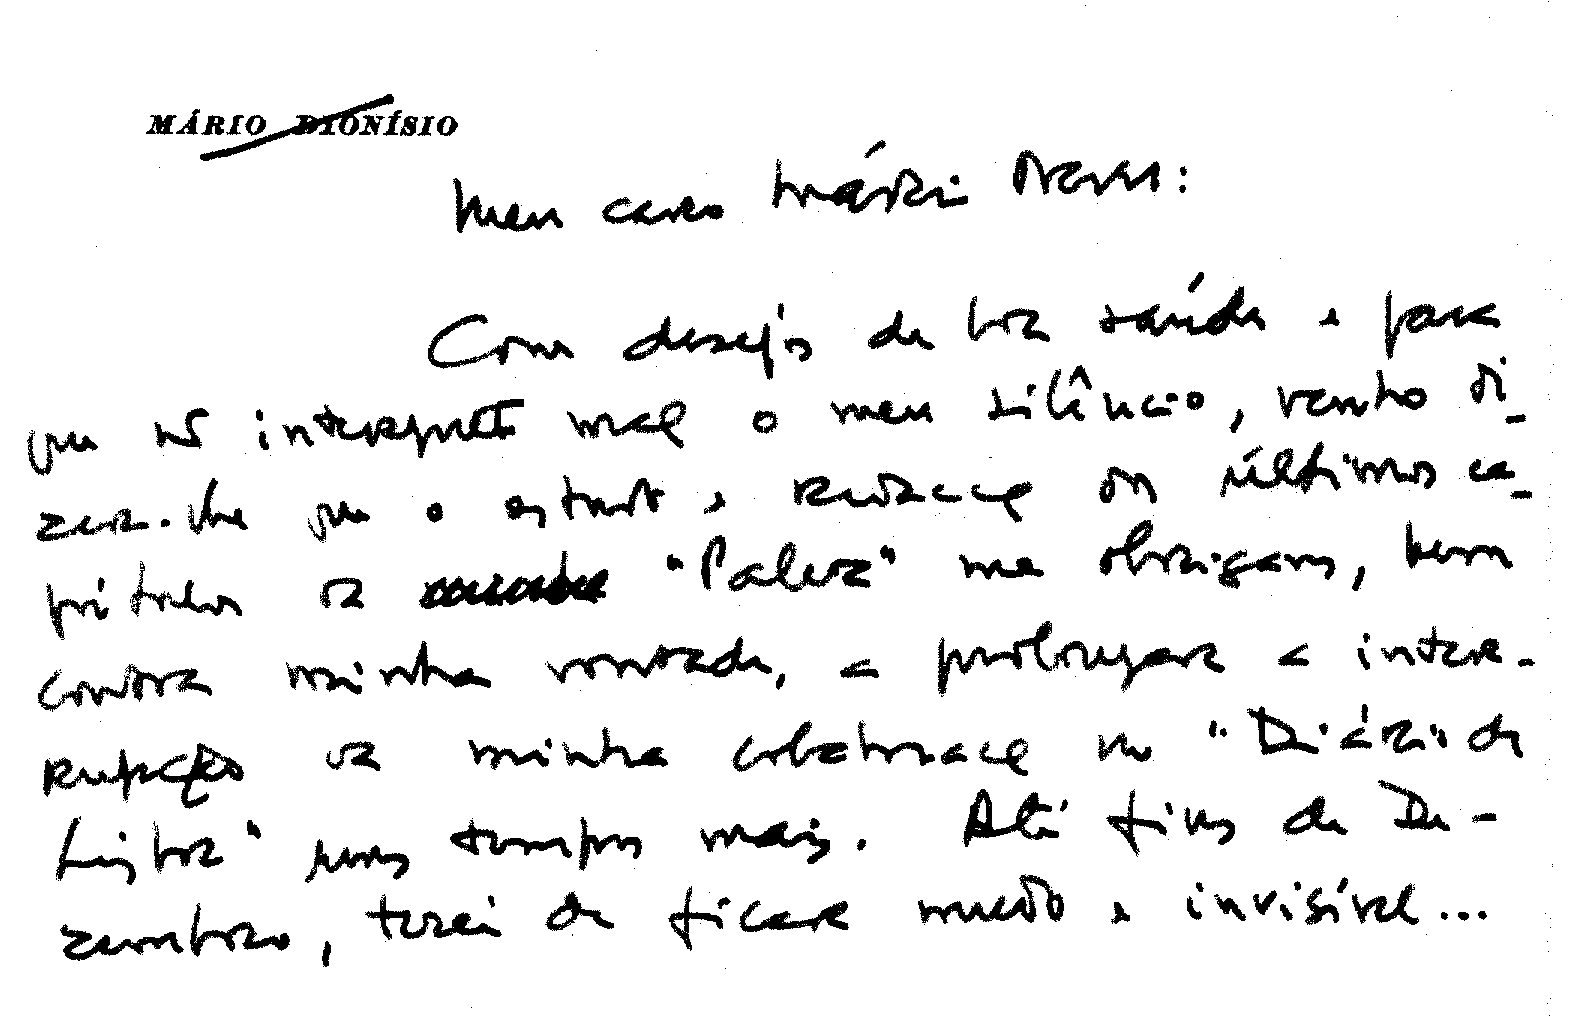 MÁRIO DIONÍSIO
Meu caro Mário Neves:
Com desejos de boa saúde e para
que não interprete mal o meu silêncio, venho di-
zer-lhe que o estudo e redacção dos últimos ca-
pítulos da "Paleta" me obrigam, bem
contra minha vontade, a prolongar a inter-
rupção da minha colaboração no "Diário de
Lisboa" uns tempos mais. Até fins de De-
zembro, terei de ficar mudo e invisível...